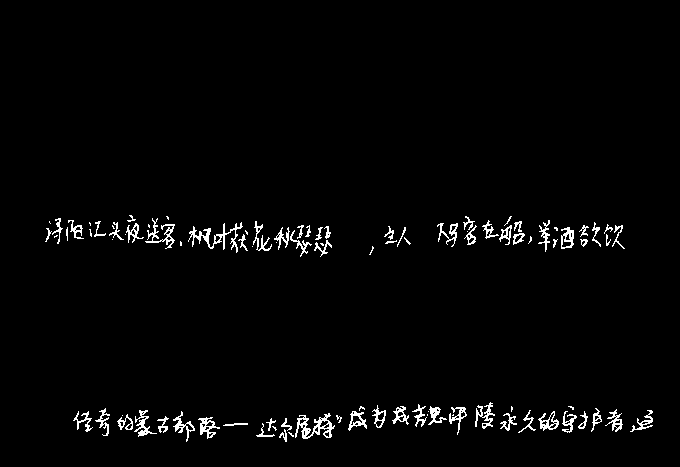 浔阳江头夜送客,枫叶荻花秋瑟瑟,主人下马客在船,举酒欲饮
传奇的蒙古部落一达尔扈特"成为成吉思汗陵永久的守护者,这